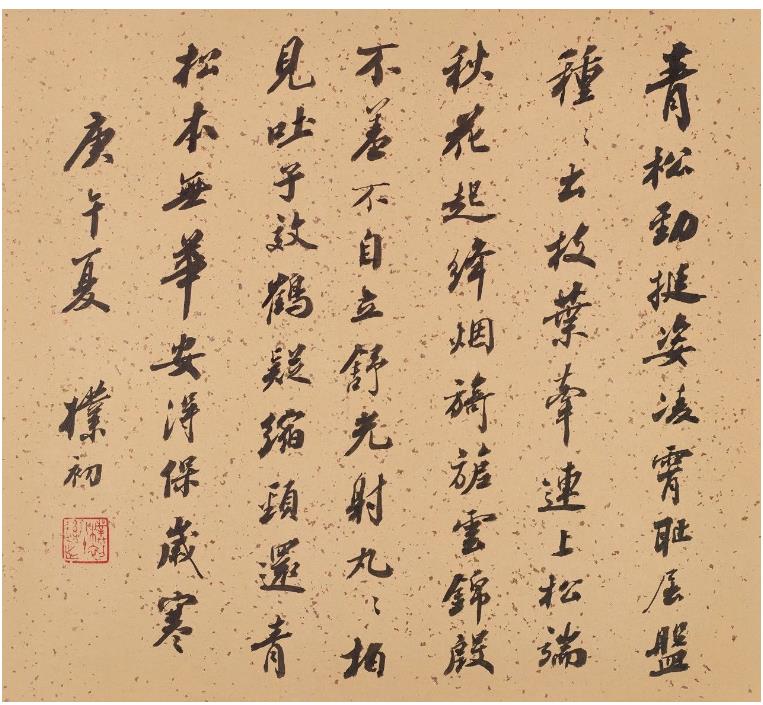 青松勁挺姿凌霄耻屈盤
種〻出枝葉牽連上松端
秋花起絳烟旖旎雲錦殷
不羞不自立舒光射丸〻柏
見吐子效鶴疑縮頸還青
松本無華安得保歲寒
庚午夏 樸初